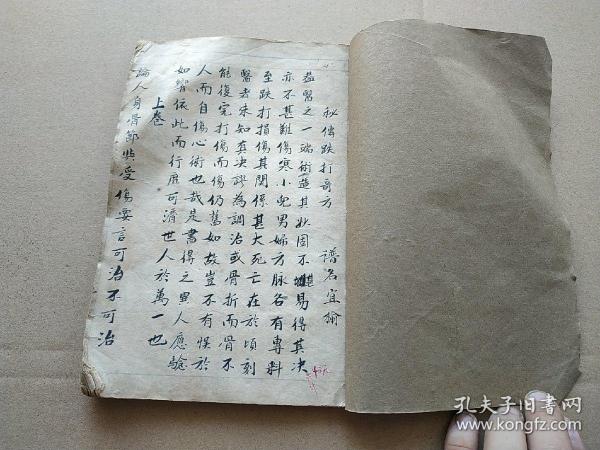 秘传跌打奇方 谱名宜揄
盖医之一端術造其妙固不甚易得其决
亦不甚難傷寒小兒男婦方脉各有專科
至跌打損傷其関係甚大死亡在於頃刻
醫者未知真决謬為調治或骨折而骨不
能復完打傷而傷仍舊如故豈不有悮於
人而自傷心術也哉是書得之異人應驗
如響依此而行庶可濟世人於萬一也
上卷
論人身骨節些受傷要言可治不可治
孔夫子旧书网
www.kongfz.com